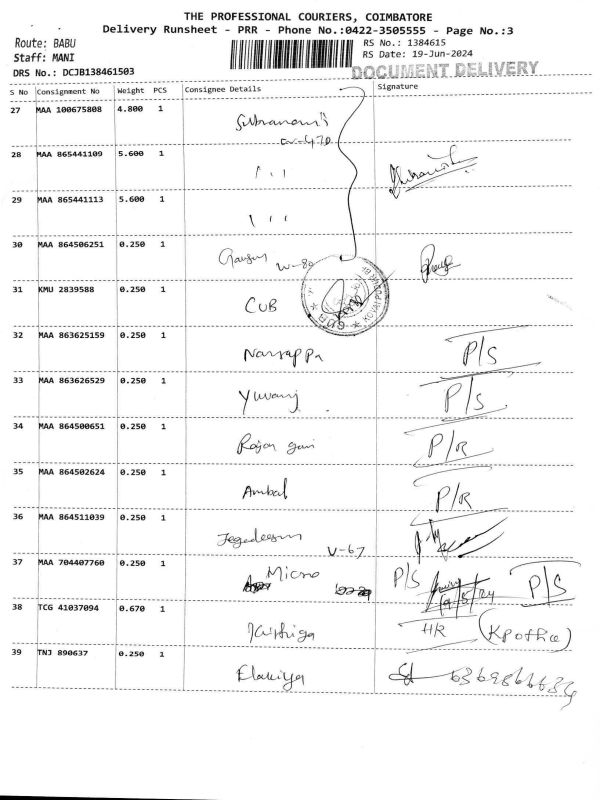 THE PROFESSIONAL COURIERS, COIMBATORE
Delivery Runsheet - PRR - Phone No.:0422-3505555 - Page No.:3
Route: BABU
RS No.: 1384615
Staff: MANI
RS Date: 19-Jun-2024
DRS No.: DCJB138461503
DOCUMENT DELIVERY
S No Consignment No Weight PCS Consignee Details Signature
27 MAA 100675808 4.800 1
28 MAA 865441109 5.600 1
29 MAA 865441113 5.600 1
30 MAA 864506251 0.250 1
31 KMU 2839588 0.250 1 CUB
32 MAA 863625159 0.250 1 P/S
33 MAA 863626529 0.250 1 Yuvaraj P/S
34 MAA 864500651 0.250 1 P/R
35 MAA 864502624 0.250 1 Ambal P/R
36 MAA 864511039 0.250 1 V-67
37 MAA 704407760 0.250 1 Micro P/S P/S
38 TCG 41037094 0.670 1 HR
39 TNJ 890637 0.250 1 Elakiya